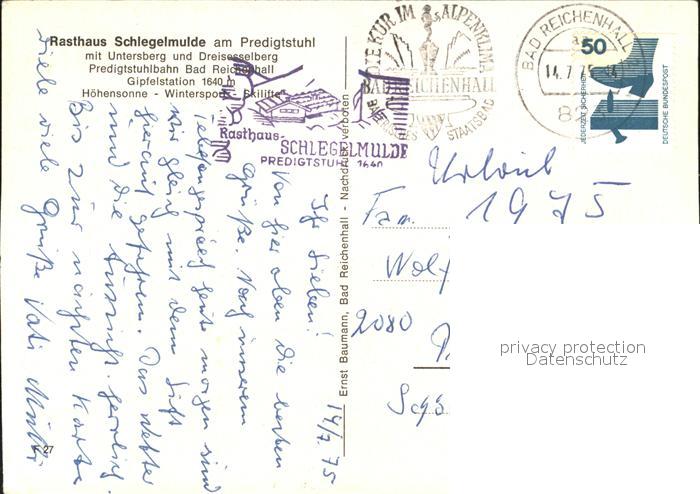 Rasthaus Schlegelmulde am Predigtstuhl
mit Untersberg und Dreisesselberg
Predigtstuhlbahn Bad Reichenhall
Gipfelstation 1640 m
Höhensonne - Wintersport - Skilifte
Rasthaus-
SCHLEGELMULDE
PREDIGTSTUHL 1640
DIE KUR IM ALPENKLIMA
BAD REICHENHALL
BAYERISCHES STAATSBAD
BAD REICHENHALL
14.7.75
50
JEDERZEIT SICHERHEIT
DEUTSCHE BUNDESPOST
Ernst Baumann, Bad Reichenhall - Nachdruck verboten
K 27
14/7.75
Ihr Lieben!
Von hier oben die besten
Grüße. Nach unserem
Telefongespräch heute morgen sind
wir gleich mit dem Lift
herauf gefahren. Das Wetter
und die Aussicht herrlich.
Bis zur nächsten Karte
Viele viele Grüße Vati Mutti
Urlaub
1975
Fam.
2080
privacy protection
Datenschutz